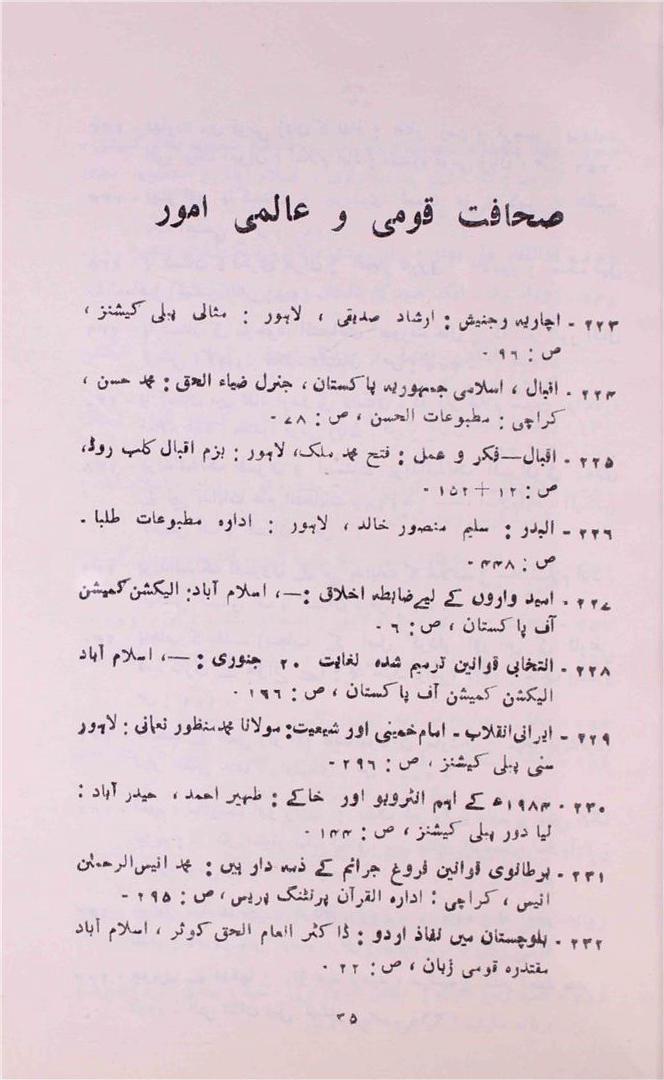 صحافت قومی و عالمی امور
۲۲۳ - اچاریہ رجنیش : ارشاد صدیقی ، لاہور : مثالی پبلی کیشنز ،
ص : ۹۶ -
۲۲۴ - اقبال ، اسلامی جمہوریہ پاکستان ، جنرل ضیاء الحق : محمد حسن ،
کراچی : مطبوعات الحسن ، ص : ۷۸ -
۲۲۵ - اقبال—فکر و عمل : فتح محمد ملک، لاہور : بزم اقبال کلب روڈ،
ص : ۱۲ + ۱۵۲ -
۲۲۶ - البدر : سلیم منصور خالد ، لاہور : ادارہ مطبوعات طلبا -
ص : ۴۴۸ -
۲۲۷ - امید واروں کے لیے ضابطہ اخلاق : — ، اسلام آباد : الیکشن کمیشن
آف پاکستان ، ص : ۶ -
۲۲۸ - انتخابی قوانین ترمیم شدہ لغایت ۲۰ جنوری : — ، اسلام آباد
الیکشن کمیشن آف پاکستان ، ص : ۱۹۶ -
۲۲۹ - ایرانی انقلاب - امام خمینی اور شیعیت : مولانا محمد منظور نعمانی : لاہور
سنی پبلی کیشنز ، ص : ۲۹۶ -
۲۳۰ - ۱۹۸۴ء کے اہم انٹرویو اور خاکے : ظہیر احمد ، حیدر آباد :
نیا دور پبلی کیشنز ، ص : ۱۴۴ -
۲۳۱ - برطانوی قوانین فروغ جرائم کے ذمہ دار ہیں : محمد انیس الرحمٰن
انیس ، کراچی : ادارہ القرآن پرنٹنگ پریس ، ص : ۲۹۵ -
۲۳۲ - بلوچستان میں نفاذ اردو : ڈاکٹر انعام الحق کوثر ، اسلام آباد
مقتدرہ قومی زبان ، ص : ۲۲ -
۳۵